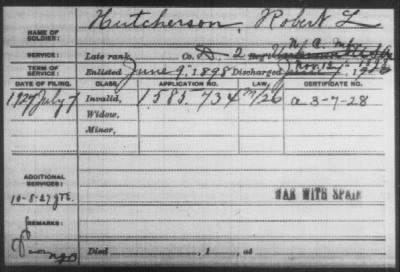 NAME OF SOLDIER: Hutcherson, Robert L
SERVICE: Late rank, Co. D, 2 Reg't
TERM OF SERVICE: Enlisted June 9, 1898 Discharged
DATE OF FILING. CLASS. APPLICATION NO. LAW. CERTIFICATE NO.
1927 July 7 Invalid, 1585.734 a 3-7-28
Widow,
Minor,
ADDITIONAL SERVICES:
WAR WITH SPAIN
10-5-27
REMARKS:
Died , 1 , at